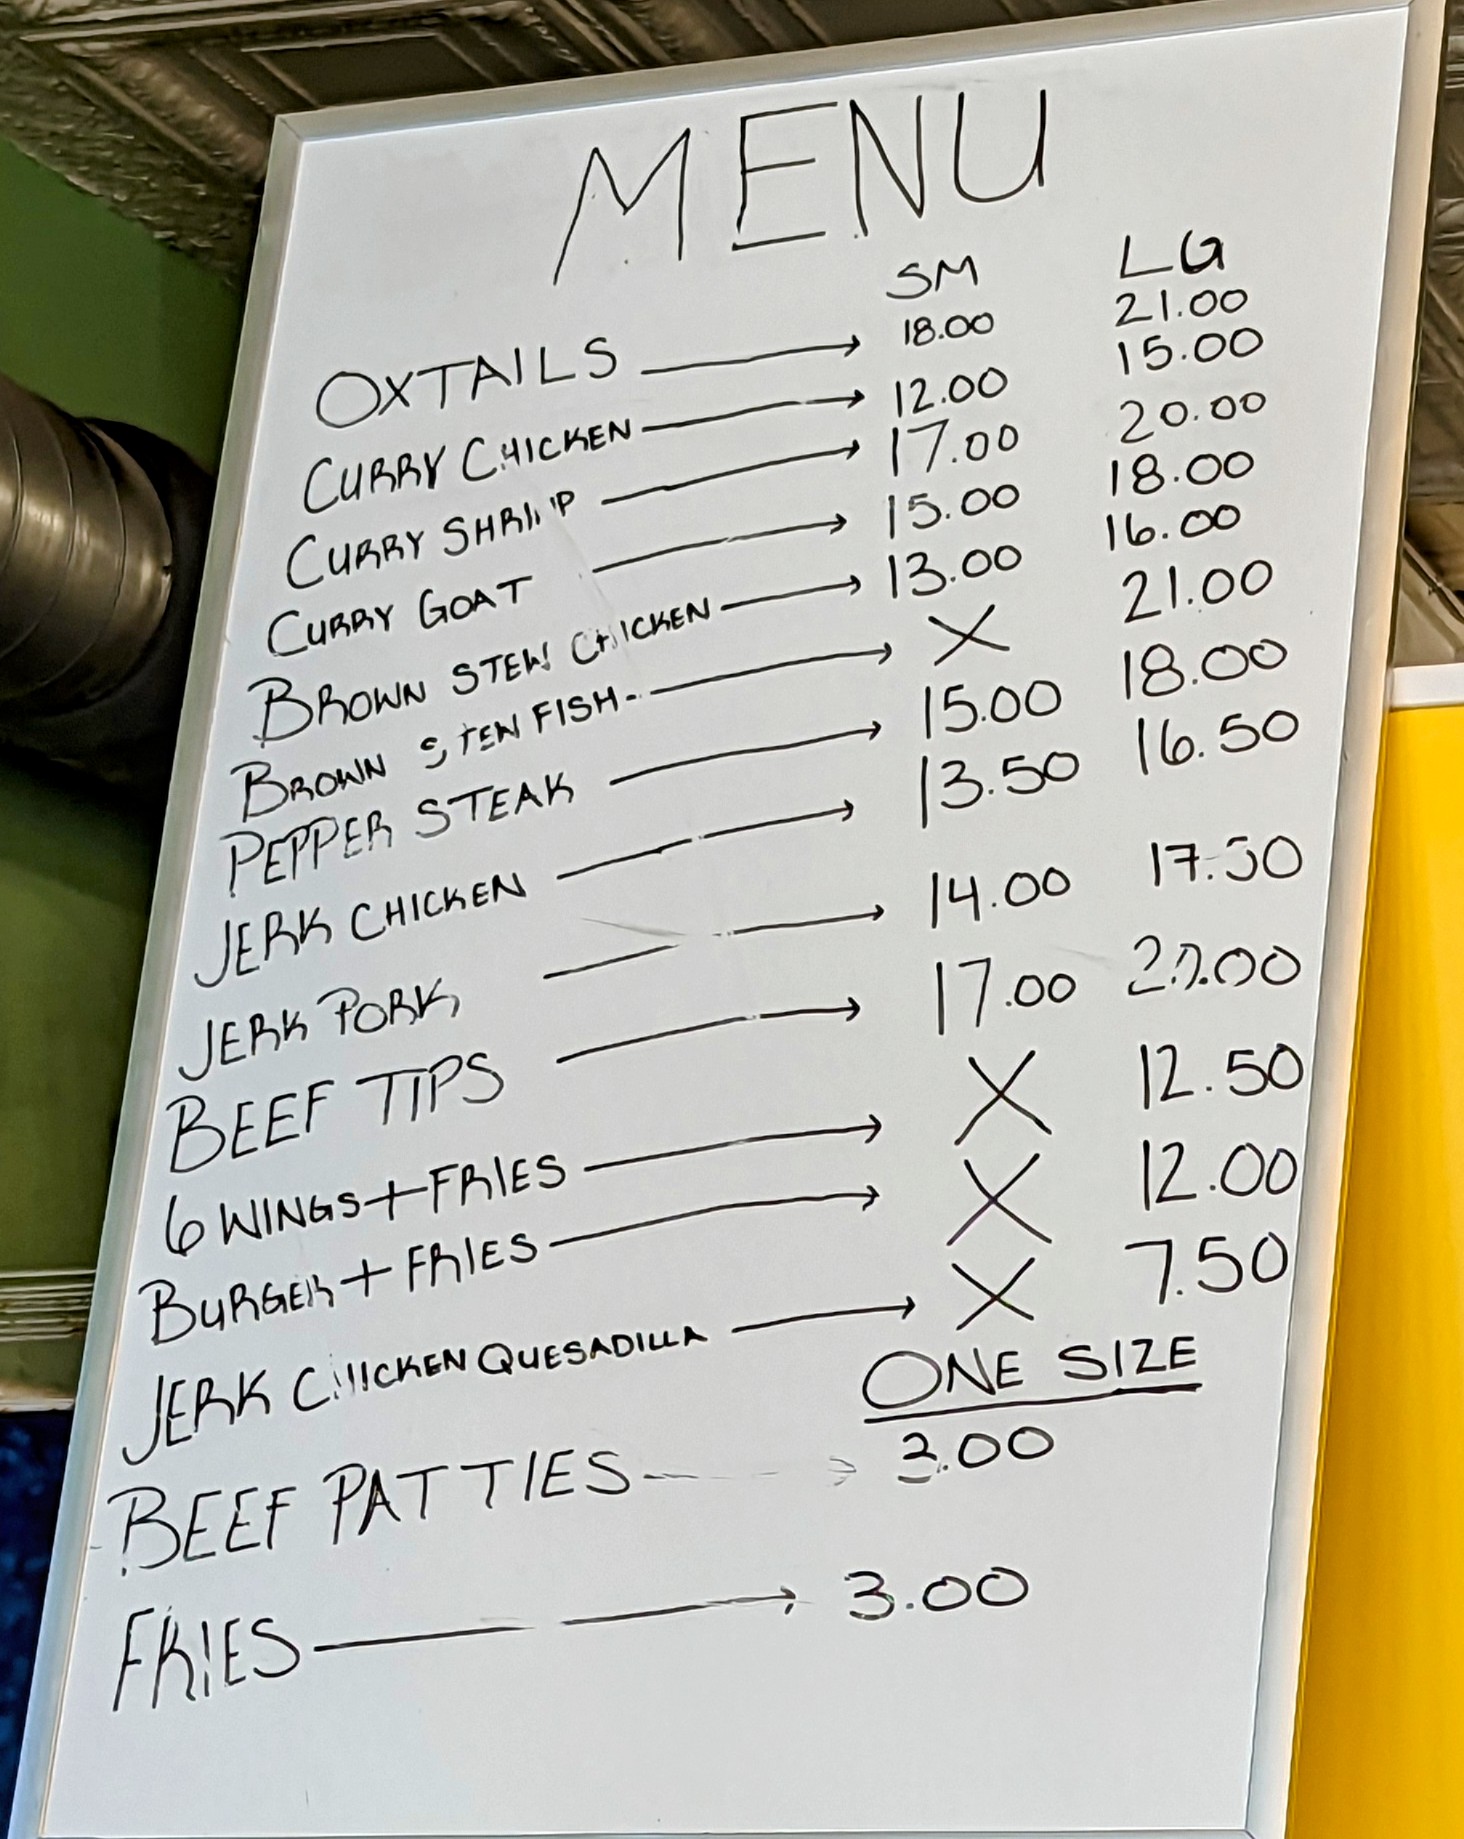 MENU
SM LG
OXTAILS → 18.00 21.00
CURRY CHICKEN → 12.00 15.00
CURRY SHRIMP → 17.00 20.00
CURRY GOAT → 15.00 18.00
BROWN STEW CHICKEN → 13.00 16.00
BROWN STEW FISH → X 21.00
PEPPER STEAK → 15.00 18.00
JERK CHICKEN → 13.50 16.50
JERK PORK → 14.00 17.50
BEEF TIPS → 17.00
6 WINGS + FRIES → X 12.50
BURGER + FRIES → X 12.00
JERK CHICKEN QUESADILLA → X 7.50
ONE SIZE
BEEF PATTIES → 3.00
FRIES → 3.00